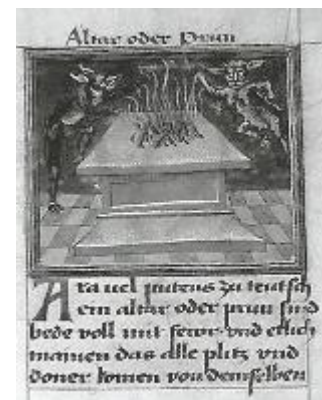 Altar oder Prun
Ara uel puteus zu teutsch
ein altar oder prun sind
bede voll mit fewr vnd etlich
mainen das alle plitz vnd
doner komen von demselben